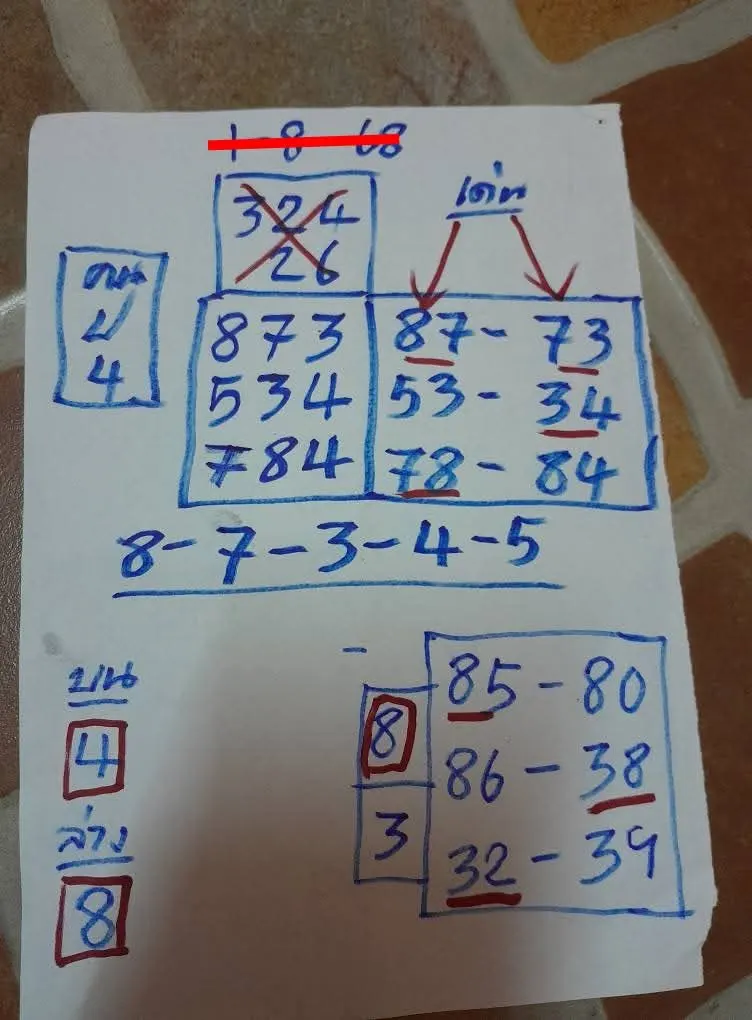 1 - 8 68
324
26
เด่น
บ
4
873
534
784
87 - 73
53 - 34
78 - 84
8 - 7 - 3 - 4 - 5
บน
4
ล่าง
8
-
8
3
85 - 80
86 - 38
32 - 39